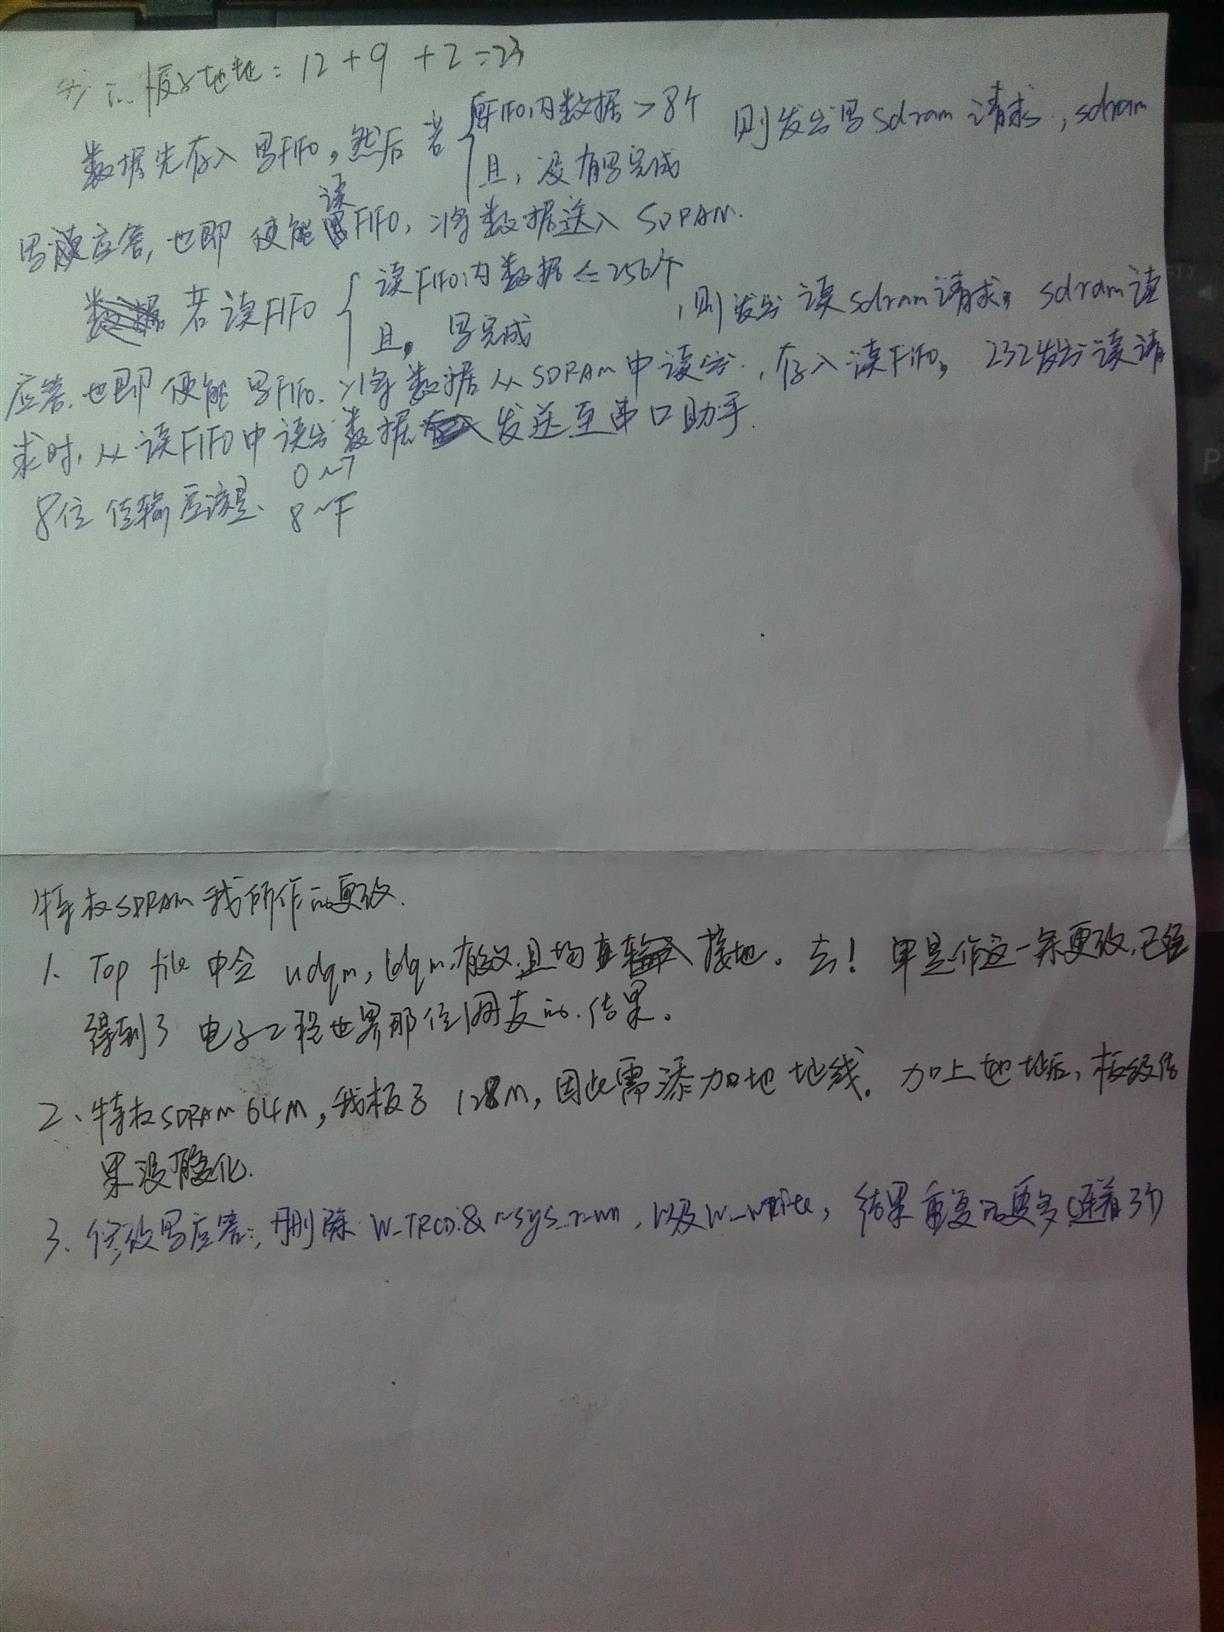 地址: 12 + 9 + 2 = 23
数据先存入写FIFO, 然后 若 { 写FIFO内数据 > 8个 则发出写sdram请求, sdram
且, 没有写完成
读
写应答, 也即 使能 FIFO, 将数据送入 SDRAM.
若读FIFO { 读FIFO内数据 ≤ 256个 , 则发出 读sdram请求, sdram读
且, 写完成
应答. 也即 使能 写FIFO. 将数据从SDRAM中读出, 存入读FIFO, 232发出读请
求时, 从读FIFO中读出数据 发送至串口助手.
0~7
8位 传输应该是. 8~F
特权SDRAM 我所作的更改.
1、Top file 中令 udqm, ldqm, 有效. 且均 接地。去! 单是作这一条更改, 已经
得到了 电子工程世界那位网友的. 结果。
2、特权SDRAM 64M, 我板子 128M, 因此需添加地址线. 加上地址后, 板级结
果没有变化.
3、修改写应答:, 删除 W_TRCD & ~sys_r_wn, 以及W_WRITE, 结果重复的更多(连着3个)